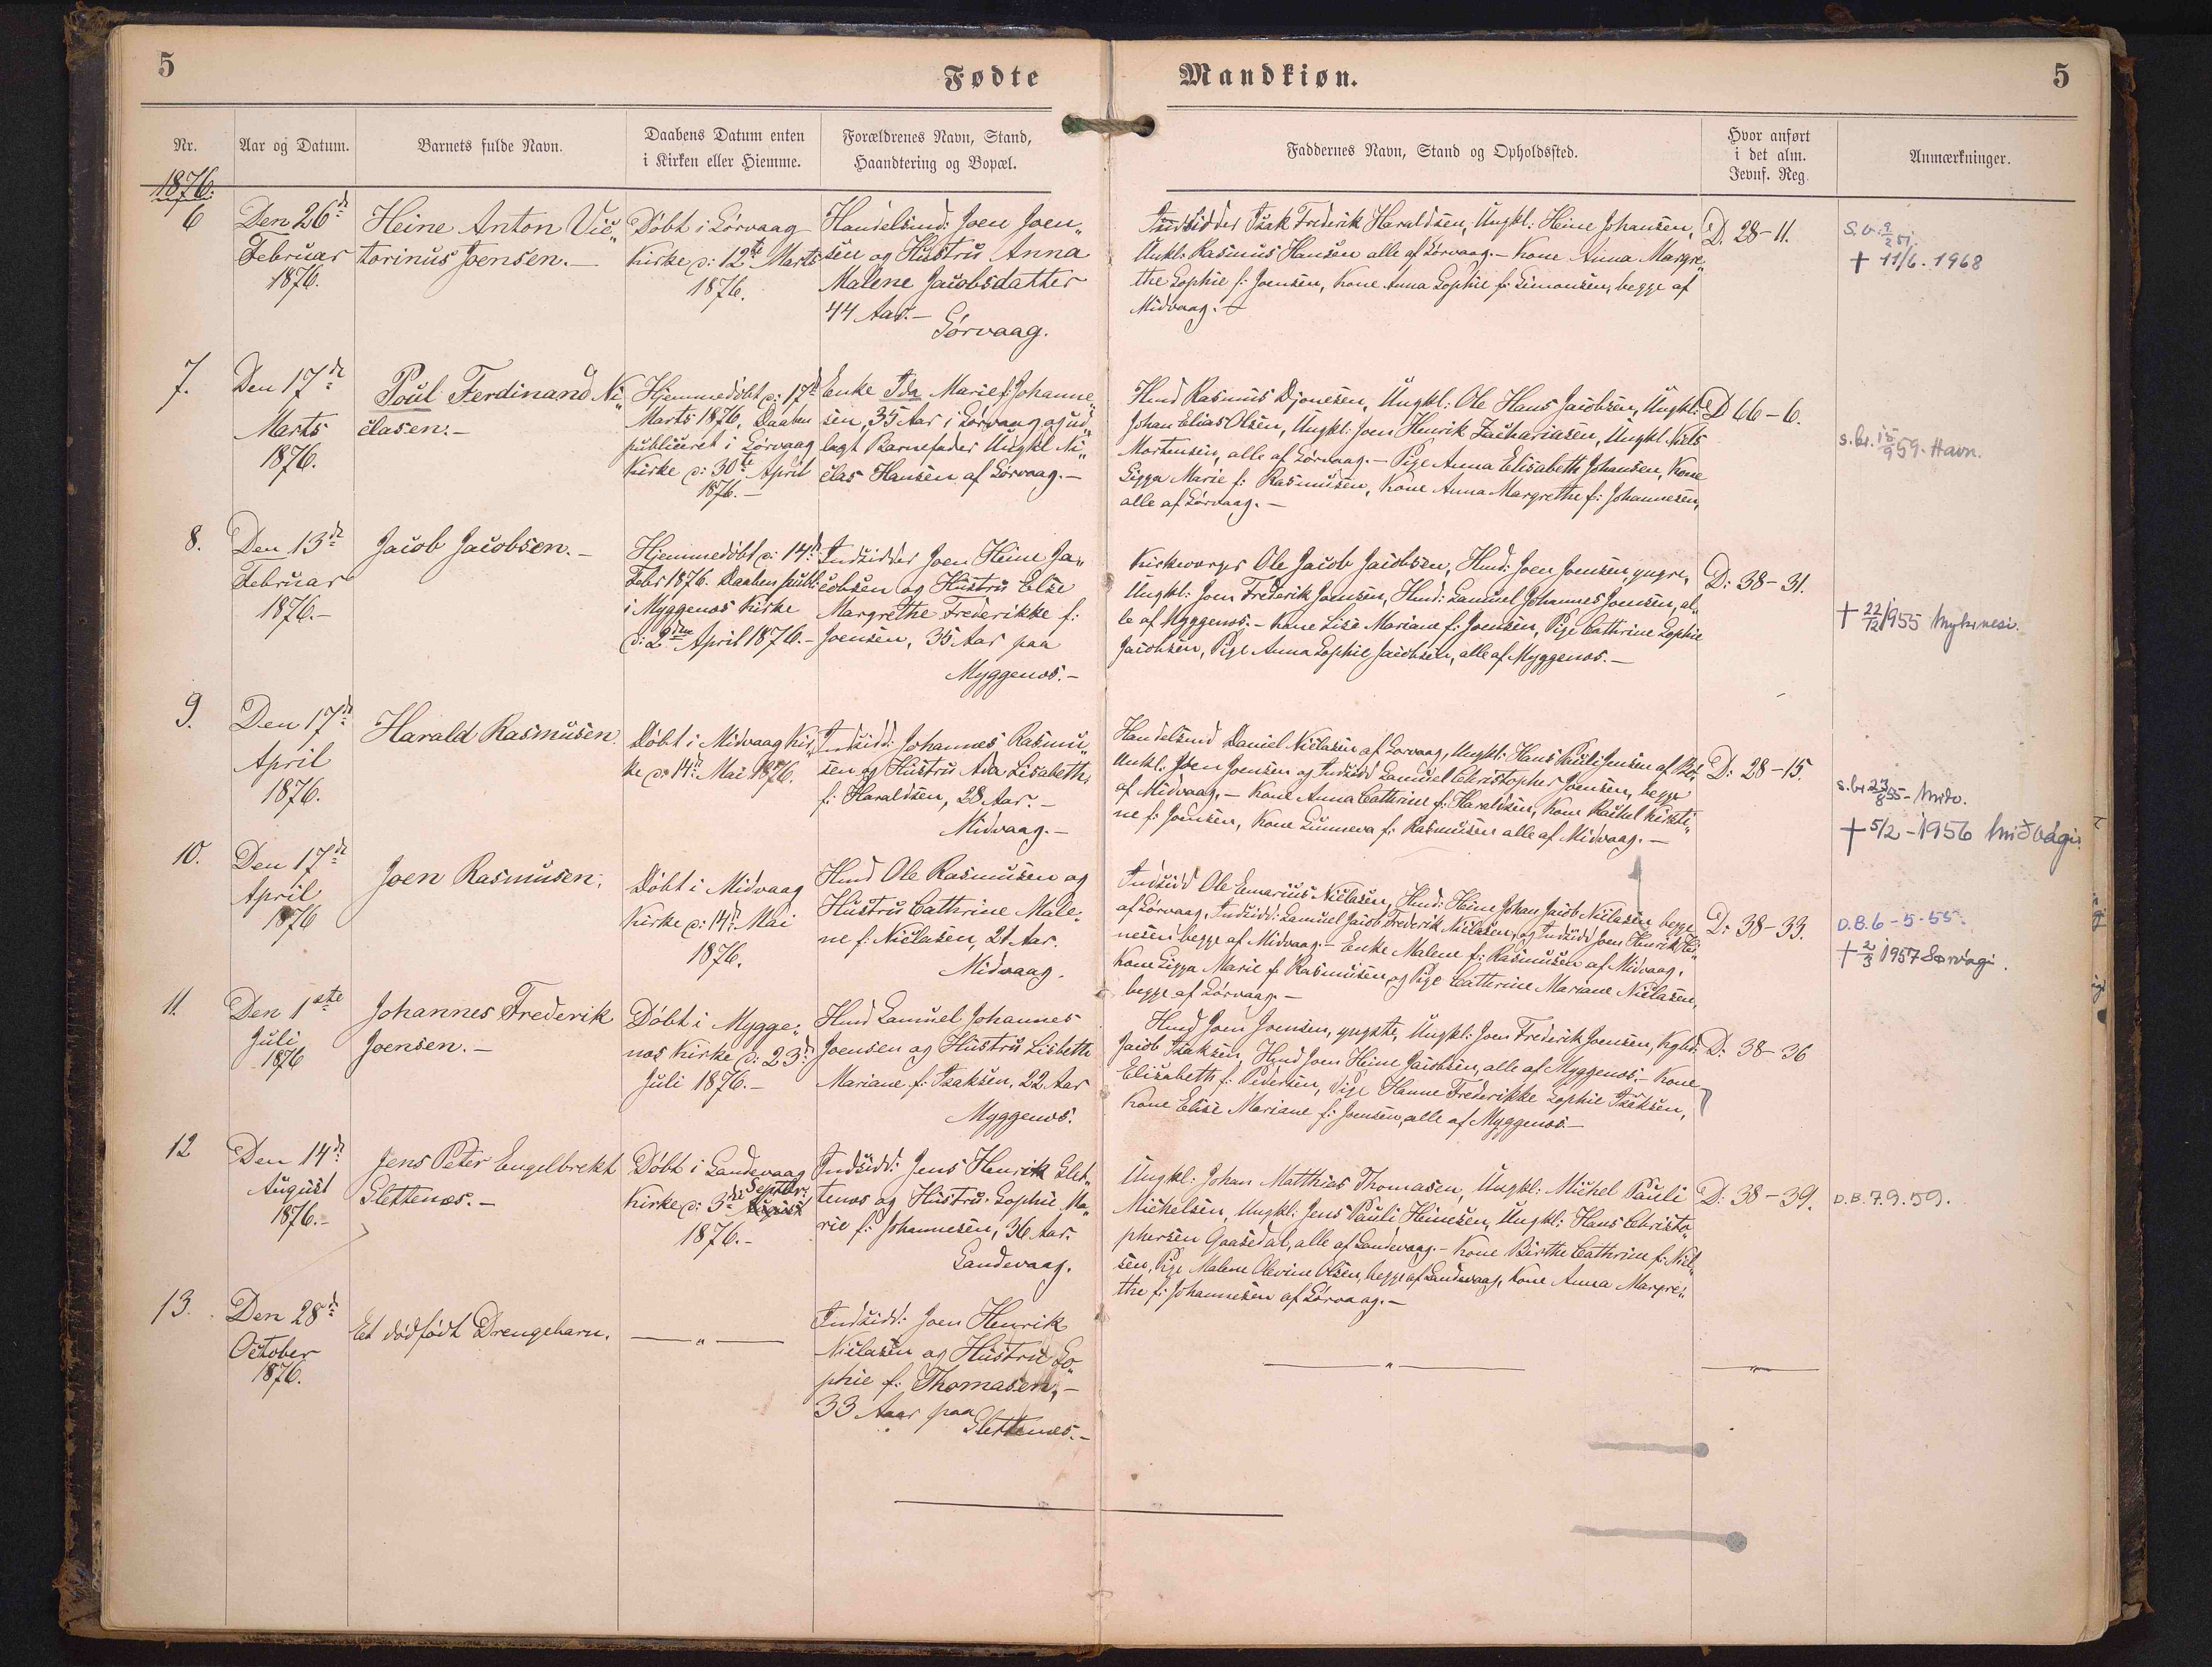 5
Fødte
Mandkiøn.
5
Nr.
Aar og Datum.
Barnets fulde Navn.
Daabens Datum enten
i Kirken eller Hiemme.
Forældrenes Navn, Stand,
Haandtering og Bopæl.
Faddernes Navn, Stand og Opholdssted.
Hvor anført
i det alm.
Jevnf. Reg.
Anmærkninger.
1876.
6
Den 26de
Februar
1876.
Heine Anton Vic„
torinus Joensen.—
Døbt i Sørvaag
Kirke d: 12te Marts
1876.
Handelsmd: Joen Joen„
sen og Hustru Anna
Malene Jacobsdatter
44 Aar.—
Sørvaag.
Indsidder Isak Frederik Haraldsen, Ungkl: Heine Johansen,
Unkl: Rasmus Hansen alle af Sørvaag.— Kone Anna Margre„
the Sophie f: Joensen, Kone Anna Sophie f: Simonsen, begge af
Midvaag.—
D. 28-11.
† 11/6. 1968
7.
Den 17de
Marts
1876.
Poul Ferdinand Ni„
clasen.—
Hjemmedøbt d: 17de
Marts 1876, Daaben
publiceret i Sørvaag
Kirke d: 30te April
1876.—
Enke Ida Marie f: Johanne„
sen, 35 Aar i Sørvaag og ud„
lagt Barnefader Ungkl Ni„
clas Hansen af Sørvaag.—
Hmd Rasmus Djonesen, Ungkl: Ole Hans Jacobsen, Ungkl:
Johan Elias Olsen, Ungkl: Joen Henrik Zachariasen, Ungkl. Niels
Mortensen, alle af Sørvaag.— Pige Anna Elisabeth Johansen, Kone
Sigga Marie f: Rasmussen, Kone Anna Margrethe f: Johannesen,
alle af Sørvaag.—
D 66-6.
s.br. 15/9 59. Havn.
8.
Den 13de
Februar
1876.—
Jacob Jacobsen.—
Hjemmedøbt d: 14de
Febr 1876. Daaben publi
i Myggenæs Kirke
d: 2den April 1876.—
Indsidder Joen Heine Ja„
cobsen og Hustru Else
Margrethe Frederikke f:
Joensen, 35 Aar paa
Myggenæs.—
Kirkeværge Ole Jacob Jacobsen, Hmd: Joen Joensen, yngre,
Ungkl: Joen Frederik Joensen, Hmd: Samuel Johannes Joensen, al„
le af Myggenæs.— Kone Lise Mariane f: Joensen, Pige Cathrine Sophie
Jacobsen, Pige Anna Sophie Jacobsen, alle af Myggenæs.—
D: 38-31.
† 22/12 1955 Mykinesi.
9.
Den 17de
April
1876.
Harald Rasmusen.
Døbt i Midvaag Kir„
ke d: 14de Mai 1876.
Indsidd: Johannes Rasmu„
sen og Hustru Ada Lisabeth
f: Haraldsen, 28 Aar.—
Midvaag.—
Handelsmd Daniel Niclasen af Sørvaag, Ungkl: Hans Pauli Jensen af Bø.
Unkl: Joen Joensen og Indsidd Samuel Christopher Joensen, begge
af Midvaag.— Kone Anna Cathrine f: Haraldsen, Kone Rachel Kirsti„
ne f: Joensen, Kone Sunneva f: Rasmusen alle af Midvaag.—
D: 28-15.
s.br. 23/8 55- Midv.
† 5/2 - 1956 Miðvági.
10.
Den 17de
April
1876
Joen Rasmusen.
Døbt i Midvaag
Kirke d: 14de Mai
1876.
Hmd Ole Rasmusen og
Hustru Cathrine Male„
ne f: Niclasen, 21 Aar.
Midvaag.
Indsidd Ole Emarius Niclasen, Hmd: Heine Johan Jacob Niclasen begge
af Sørvaag, Indsidd: Samuel Jacob Frederik Niclasen, og Indsidd Joen Henrik Hei„
nesen begge af Midvaag.— Enke Malene f: Rasmusen af Midvaag,
Kone Sigga Marie f: Rasmusen og Pige Cathrine Mariane Niclasen,
begge af Sørvaag.—
D: 38-33.
D.B. 6-5-55.
† 2/3 1957 Sørvági.
11.
Den 1ste
Juli
1876
Johannes Frederik
Joensen.—
Døbt i Mygge„
næs Kirke d: 23de
Juli 1876.—
Hmd Samuel Johannes
Joensen og Hustru Lisbeth
Mariane f: Isaksen, 22 Aar
Myggenæs.
Hmd Joen Joensen, yngste, Ungkl: Joen Frederik Joensen,
Jacob Isaksen, Hmd Joen Heine Jacobsen, alle af Myggenæs.— Kone
Elisabeth f: Pedersen, Pige Hanne Frederikke Sophie Isaksen,
Kone Elise Mariane f: Joensen, alle af Myggenæs.—
D: 38-36
12
Den 14de
August
1876.—
Jens Peter Engelbrekt
Slettenæs.—
Døbt i Sandevaag
Septbr:
Kirke d: 3de August
1876.—
Indsidd: Jens Henrik Slet„
tenæs og Hustru Sophie Ma„
rie f: Johannesen, 36 Aar.
Sandevaag.
Ungkl: Johan Matthias Thomasen, Ungkl: Michel Pauli
Michelsen, Ungkl: Jens Pauli Heinesen, Ungkl: Hans Christo„
phersen Gaasedal, alle af Sandevaag.— Kone Birthe Cathrine f: Niel„
sen, Pige Malene Olevine Olsen, begge af Sandevaag, Kone Anna Margre„
the f: Johannesen af Sørvaag.—
D: 38-39.
D.B. 7.9.59.
13.
Den 28de
October
1876.
Et dødfødt Drengebarn.
—„—
Indsidd: Joen Henrik
Niclasen og Hustru So„
phie f: Thomasen,—
33 Aar paa
Slettenæs.—
—„—
—„—